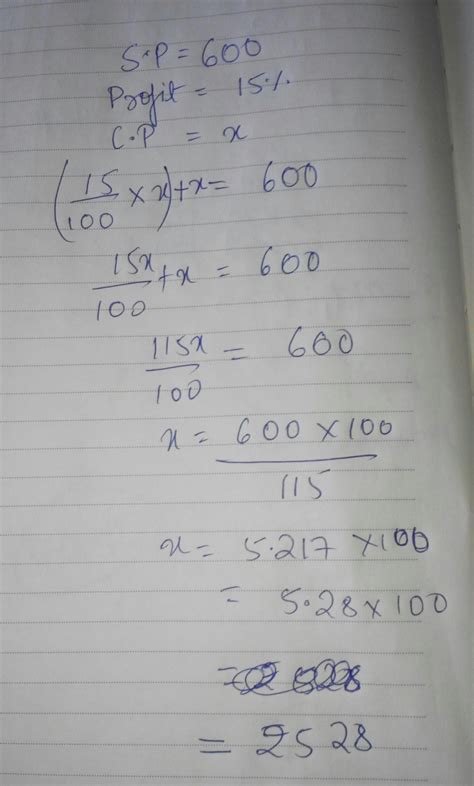 S.P = 600
Profit = 15%
C.P = x
(15/100 × x) + x = 600
15x/100 + x = 600
115x/100 = 600
x = 600 × 100/115
x = 5.217 × 100
= 5.28 × 100
= 2528